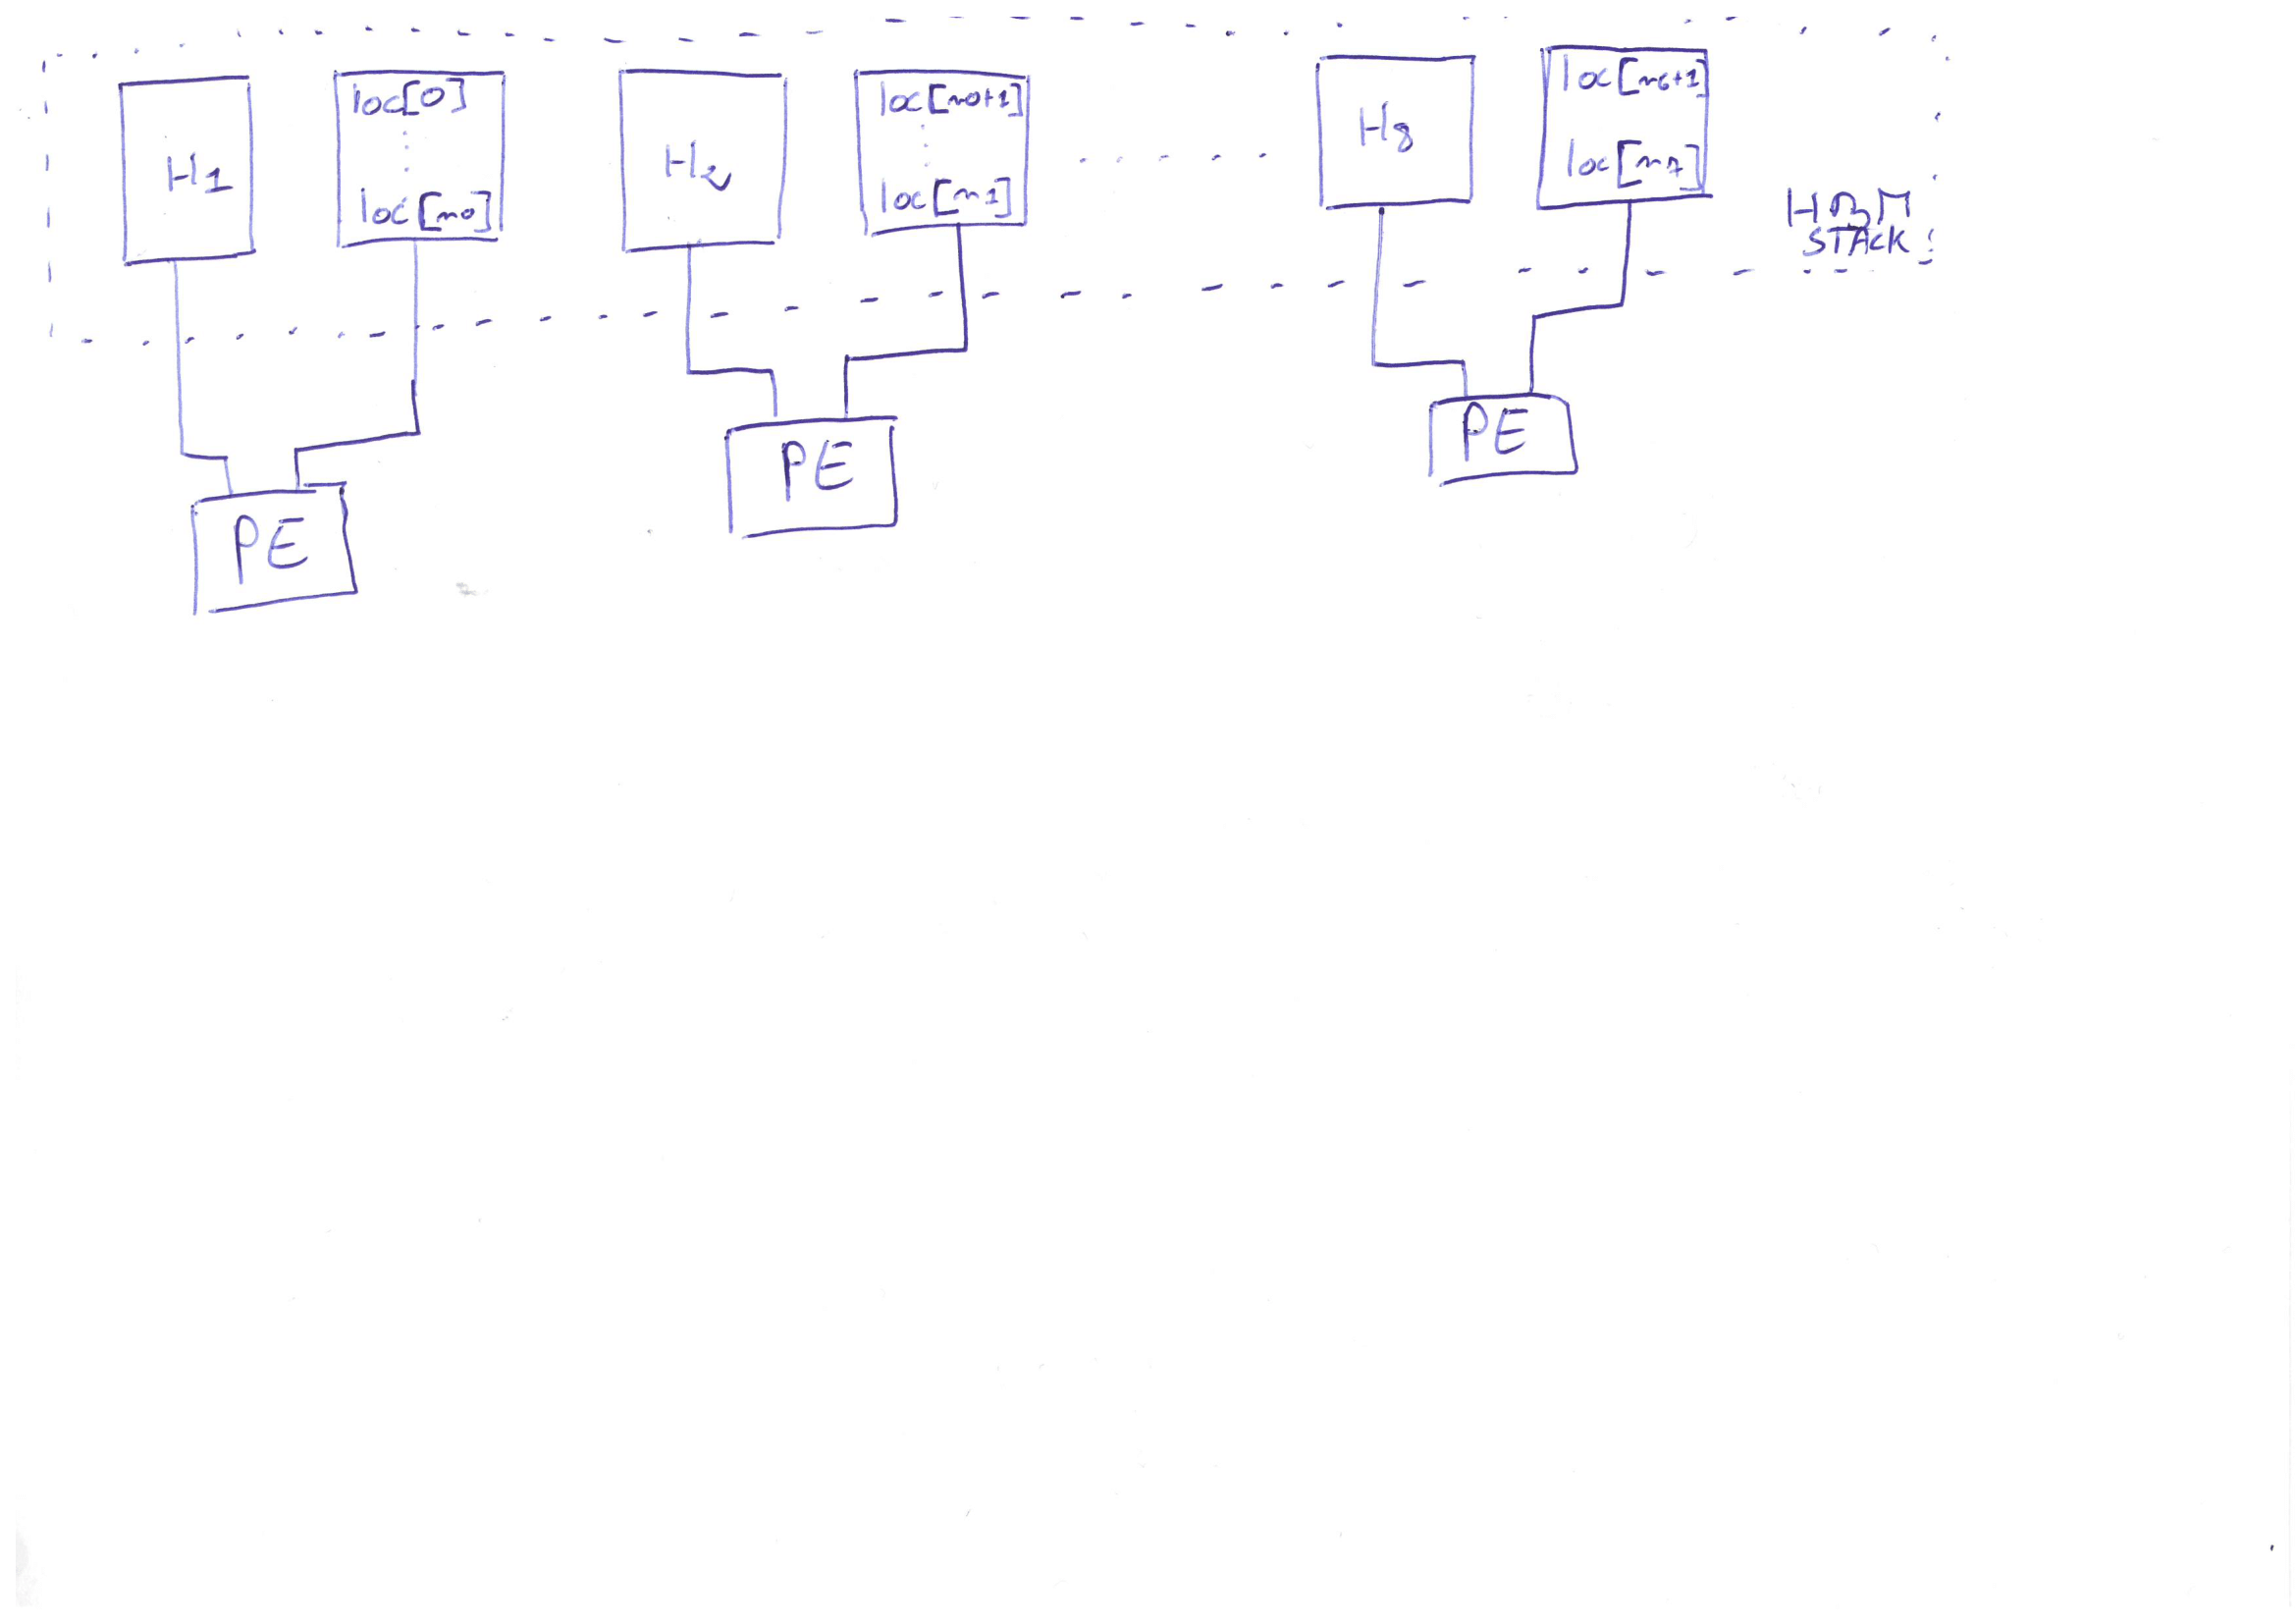 H1
loc[0]
loc[n0]
H2
loc[n0+1]
loc[n1]
H8
loc[n6+1]
loc[n7]
HBM
STACK
PE
PE
PE